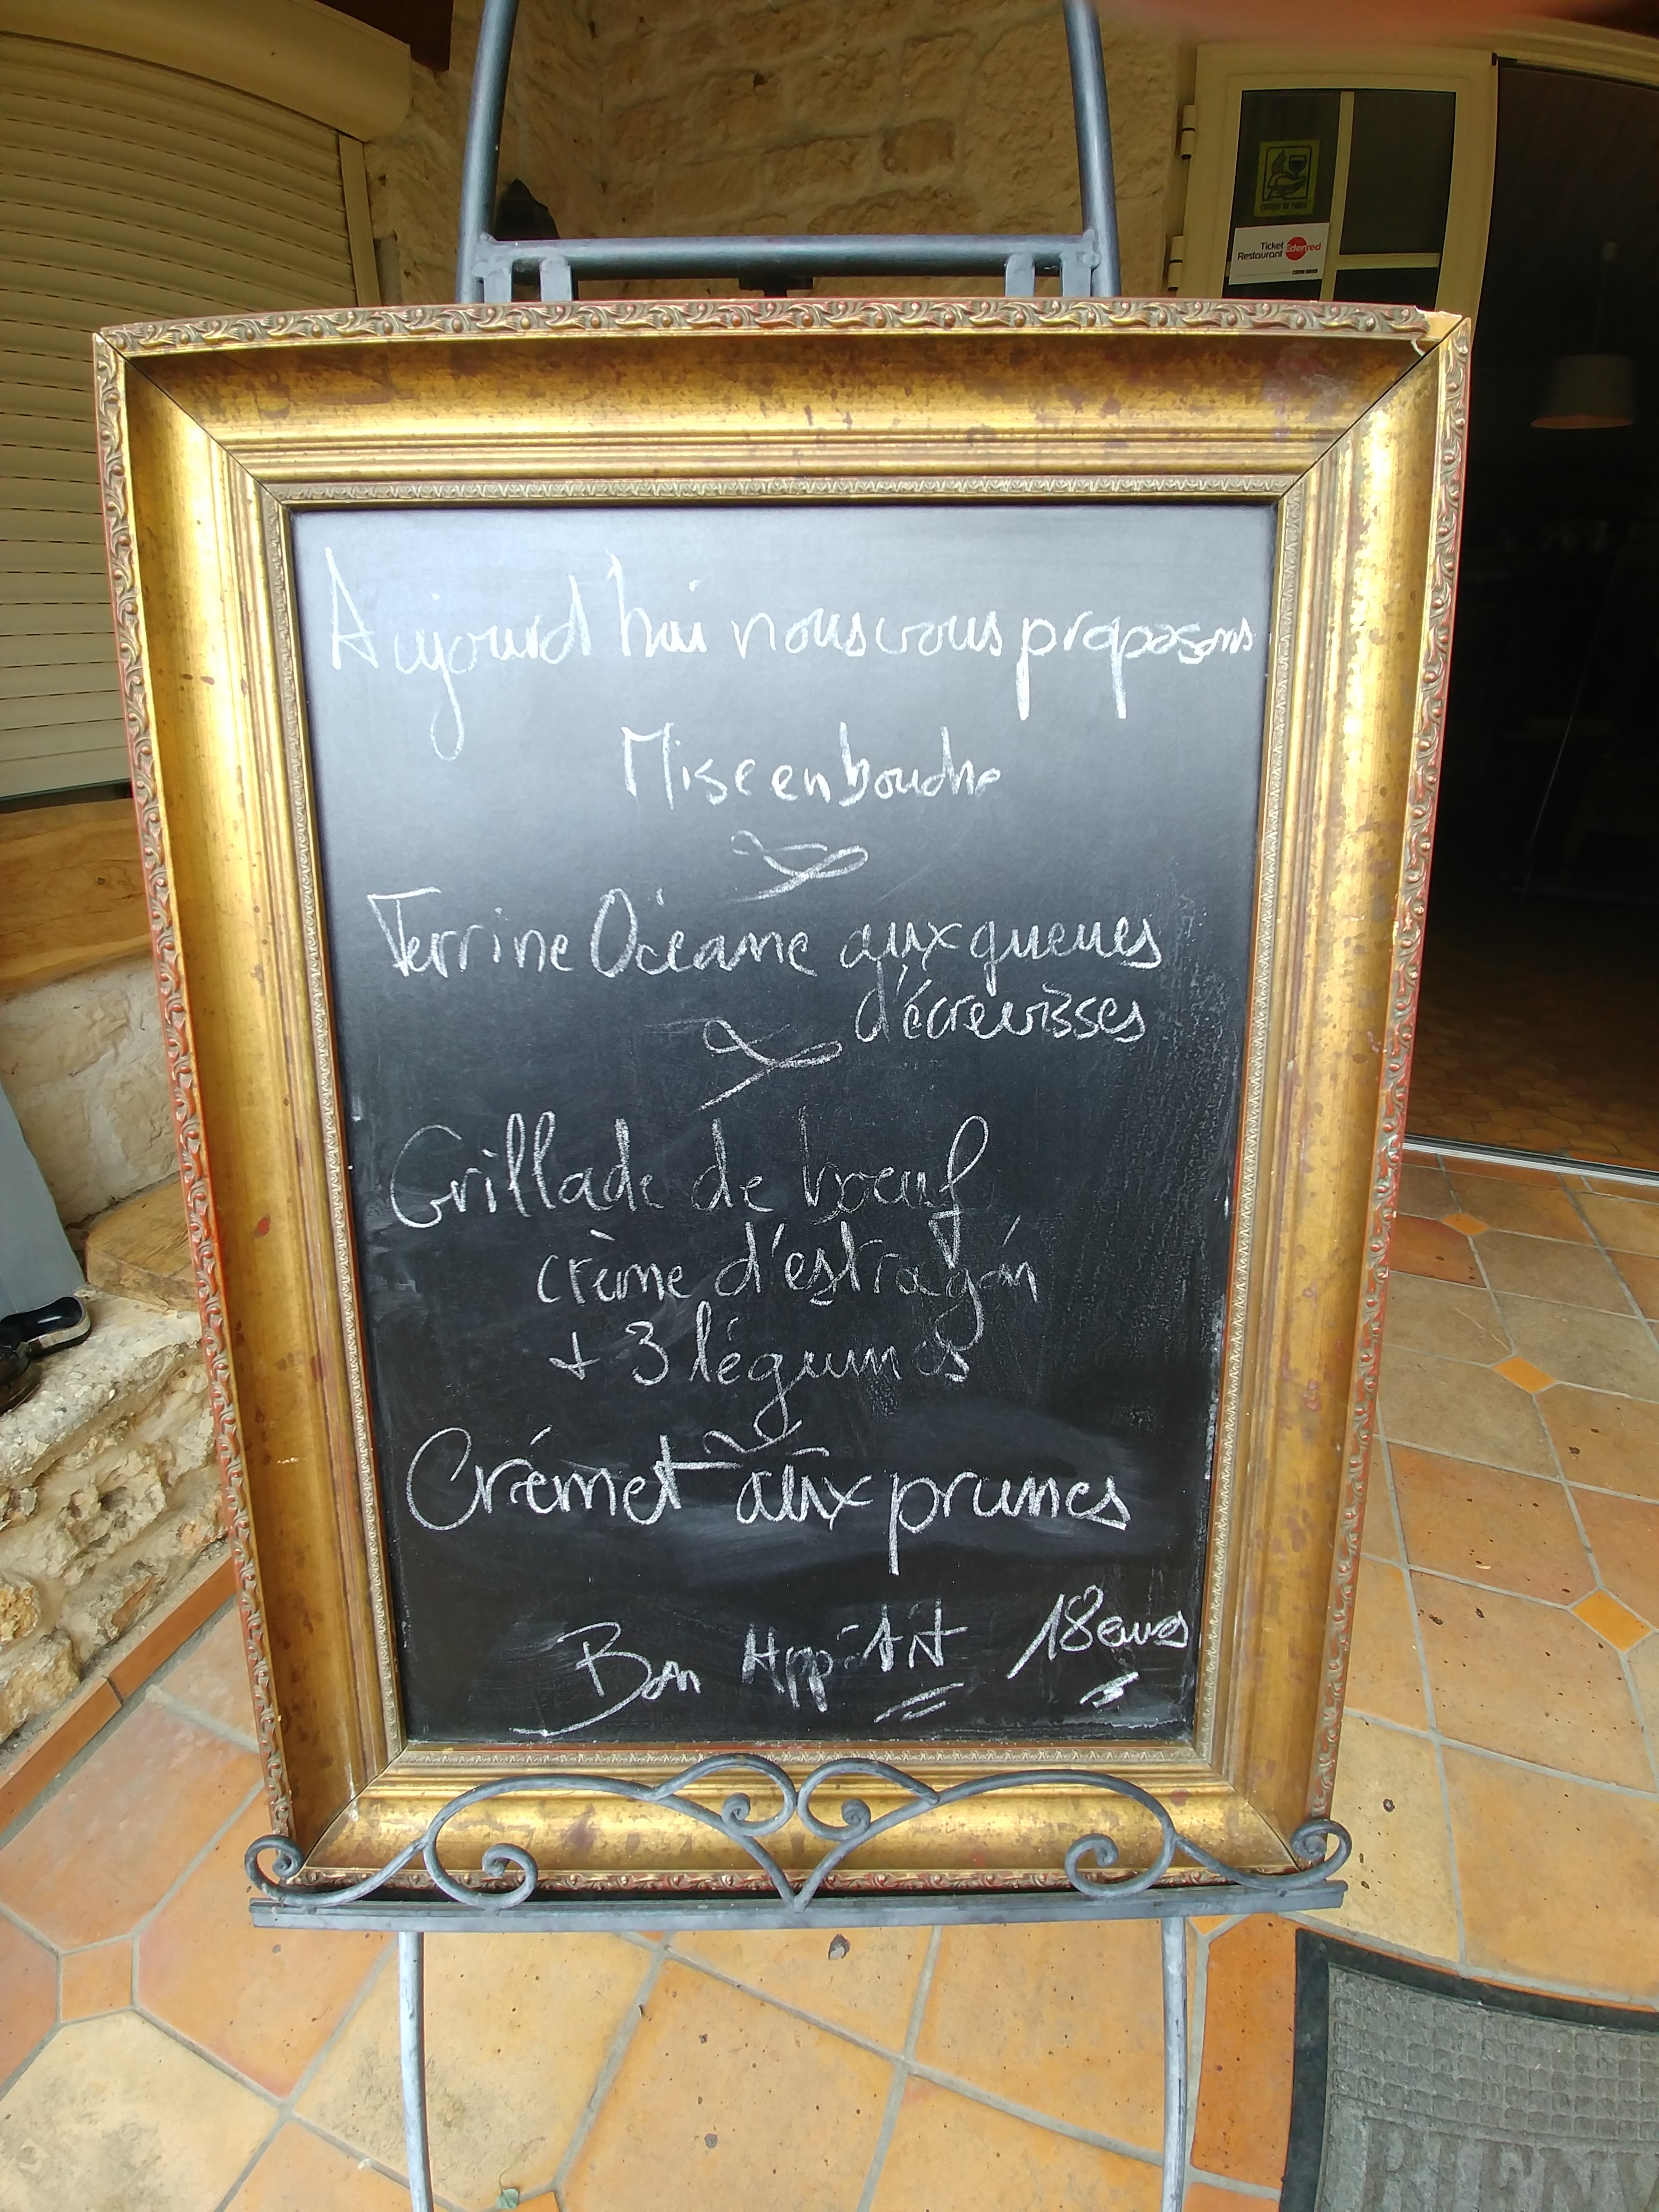 Ticket
Restaurant Edenred
Aujourd'hui nous vous proposons
Mise en bouche
Terrine Océane aux queues
d'écrevisses
Grillade de boeuf
crème d'estragon
+ 3 légumes
Crémet aux prunes
Bon Appétit 18euros
BIENV